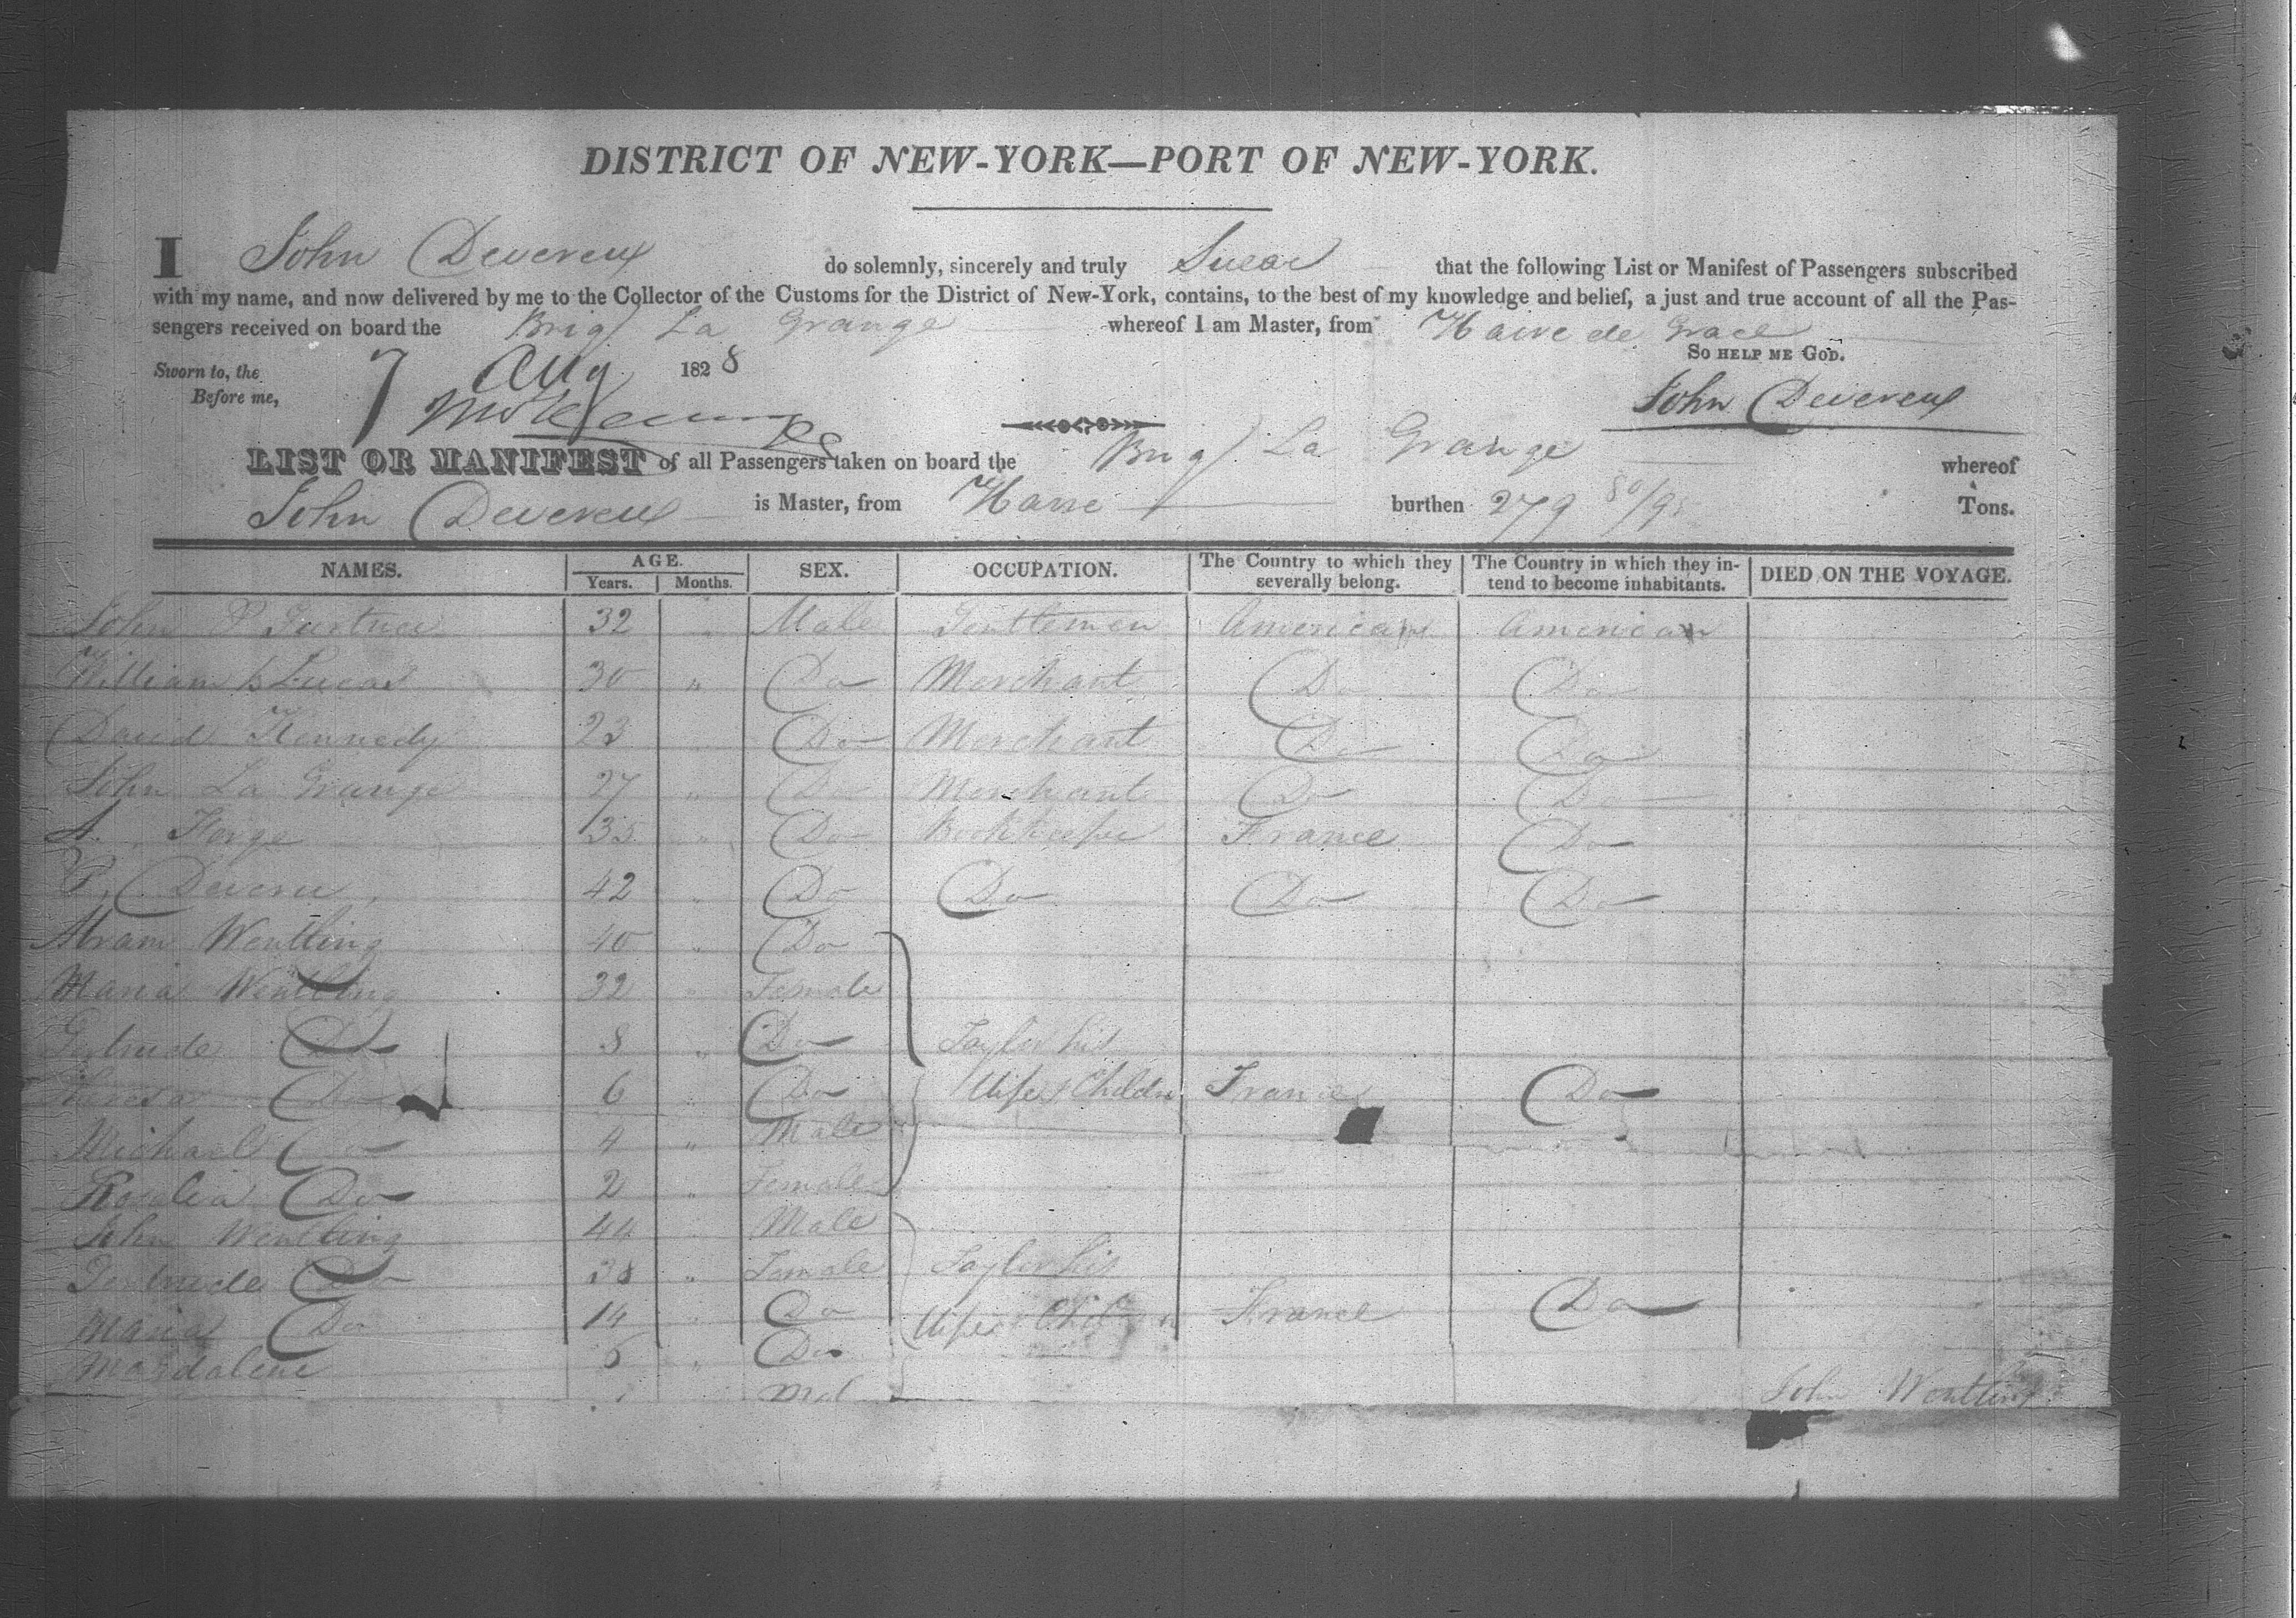 DISTRICT OF NEW-YORK—PORT OF NEW-YORK.
I John Devereux do solemnly, sincerely and truly Swear that the following List or Manifest of Passengers subscribed
with my name, and now delivered by me to the Collector of the Customs for the District of New-York, contains, to the best of my knowledge and belief, a just and true account of all the Pas-
sengers received on board the Brig La Grange whereof I am Master, from Havre de Grace
So help me God.
Sworn to, the 7 Aug 1828
Before me,
John Devereux
LIST OR MANIFEST of all Passengers taken on board the Brig La Grange whereof
John Devereux is Master, from Havre burthen 279 80/95 Tons.
NAMES. AGE. Years. Months. SEX. OCCUPATION. The Country to which they severally belong. The Country in which they in-tend to become inhabitants. DIED ON THE VOYAGE.
John P 32 " Male Gentlemen American American
William Lucas 30 " Do Merchant Do Do
David Kennedy 23 " Do Merchant Do Do
John La Grange 27 " Do Merchant Do Do
A. Forge 35 " Do Bookkeeper France Do
P. 42 " Do Do Do Do
Abram Wentling 40 " Do
Maria Wentling 32 " Female
Gertrude Do 8 " Do Tayler his
Theresa Do 6 " Do Wife & Childn France Do
Michael Do 4 " Male
Rosalia Do 2 " Female
John Wentling 44 " Male
Gertrude Do 38 " Female Tayler his
Maria Do 14 " Do Wife & France Do
Magdalene " Do
John Wentling